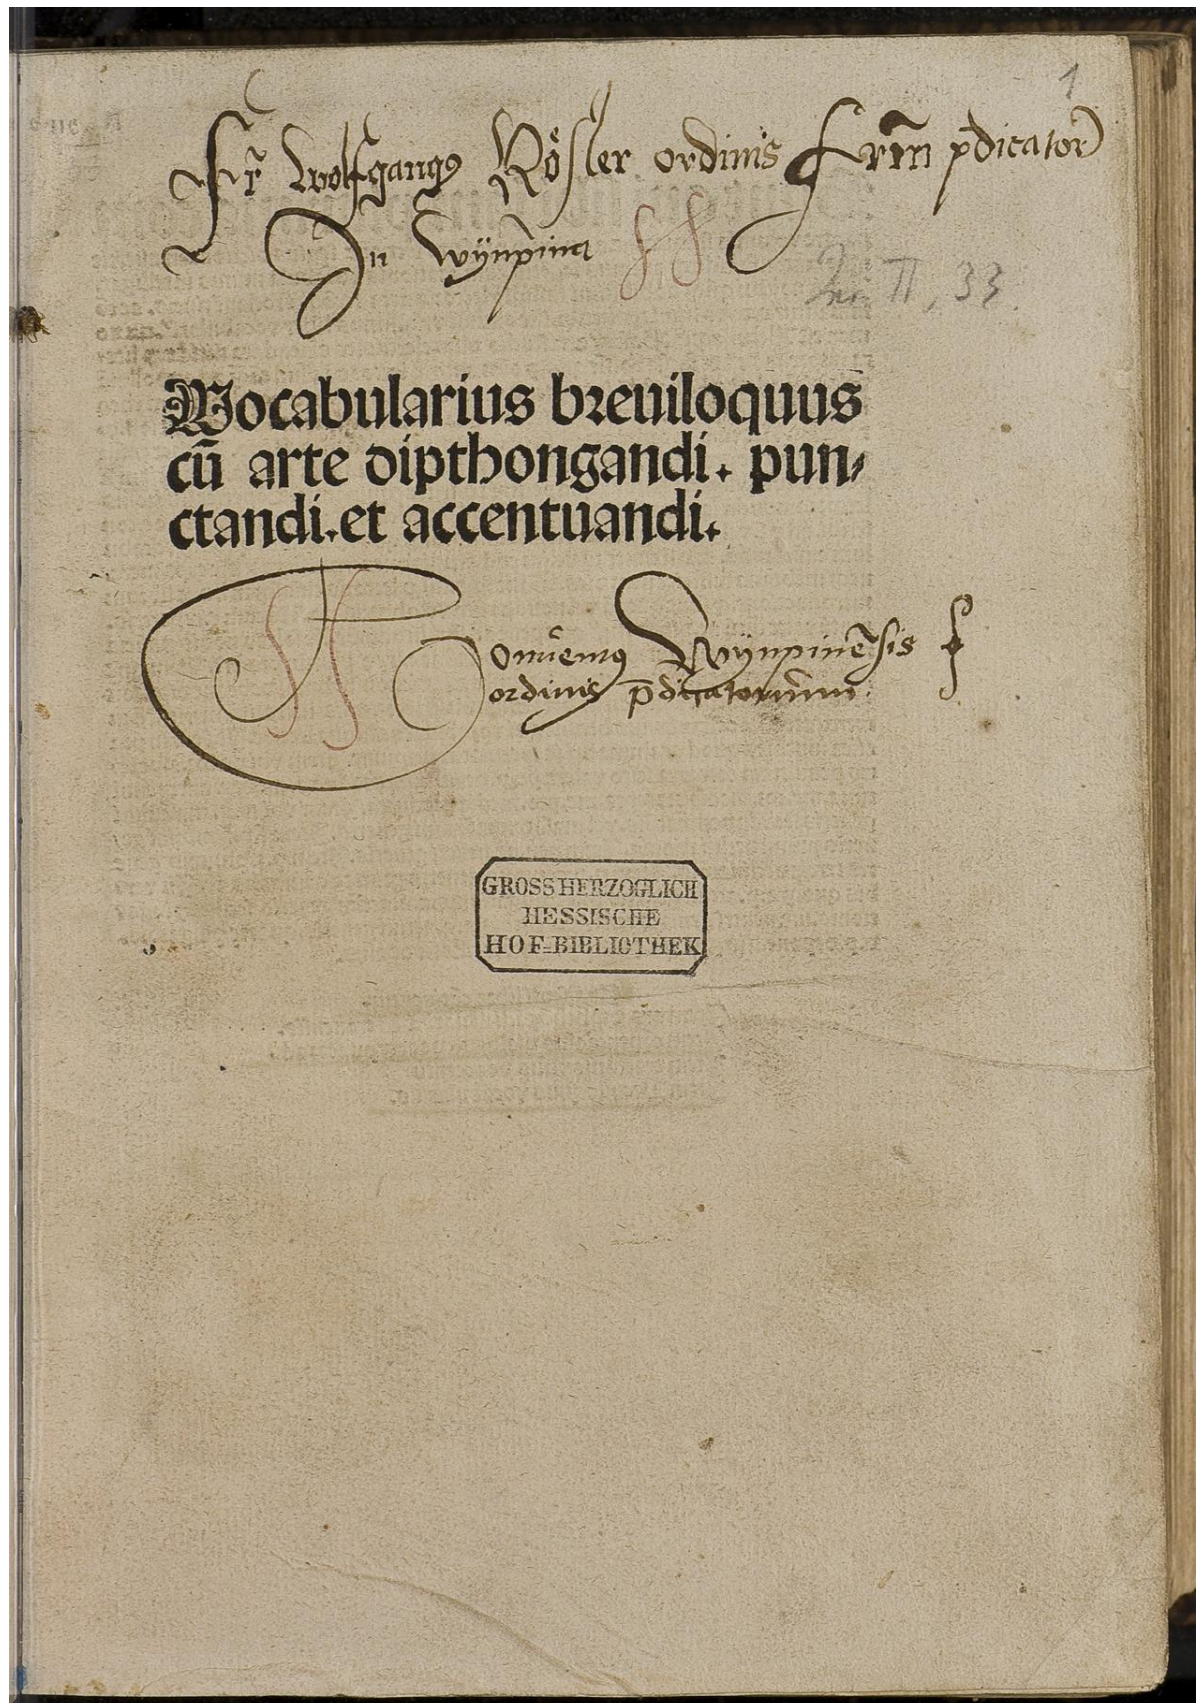 1
Fr̄ Wolfgangꝰ Rösler ordinis frm̄ p̄dicator
In Wÿnpina
II, 33.
Vocabularius breuiloquus
cū arte dipthongandi. pun⸗
ctandi. et accentuandi.
Conuentꝰ Wÿnpinēsis
ordinis p̄dicatorum
GROSSHERZOGLICH
HESSISCHE
HOF-BIBLIOTHEK